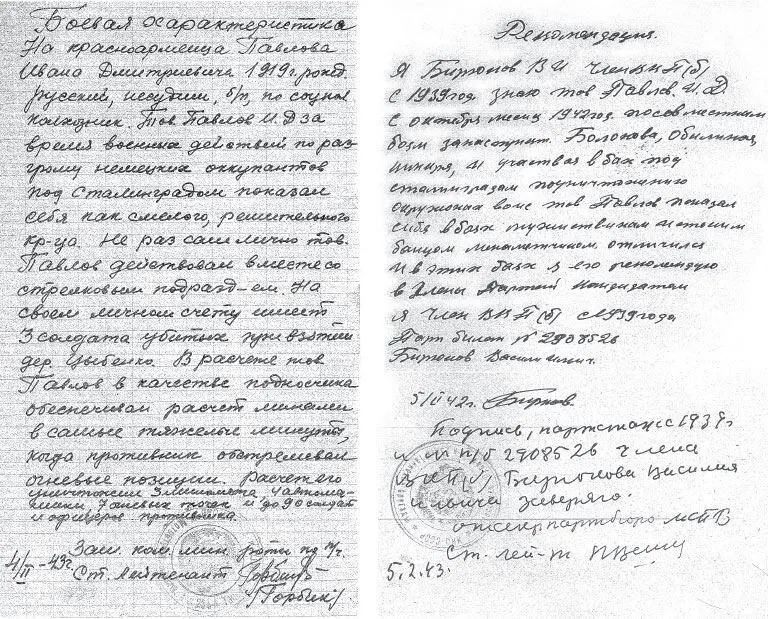 Боевая характеристика
На красноармейца Павлова
Ивана Дмитриевича 1919г. рожд.
русский, несудим, б/п, по соцпол
колхозник. Тов. Павлов И.Д за
время военных действий по раз-
грому немецких оккупантов
под Сталинградом показал
себя как смелого, решительного
кр-ца. Не раз сам лично тов.
Павлов действовал вместе со
стрелковым подразд-ем. На
своем личном счету имеет
3 солдата убитых при взятии
дер. Цыбенко. В расчете тов
Павлов в качестве подносчика
обеспечивал расчет минами
в самые тяжелые минуты,
когда противник обстреливал
огневые позиции. Расчет его
уничтожил 3 миномета, 4 автома-
шины, 7 огневых точек и до 90 солдат
и офицеров противника.
Зам. ком. мин. роты по п/ч.
4/II-43г. Ст. Лейтенант
/Горбик/
Рекомендация.
Я Бирюков В И член ВКП(б)
с 1939год. знаю тов Павлов. И. Д.
с октября месяц 1942год. по совместным
боям
и участвуя в боях под
сталинградам по уничтожению
окружоная войс тов Павлов показал
себя в боях мужествиным истоким
бойцом минометчиком. отличился
и в этих боях я его рекомендую
в Члены Партии кандидатам
я Член ВКП(б) с 1939года
Парт билет № 2908526
Бирюков Василь
5/II 42г.
Подпись, партстаж с 1939г
и № п/б 2908526 члена
ВКП/б/, Бирюкова Василия
заверяю.
отсекр партбюро МСПВ
Ст. лей-т
5.2.43.